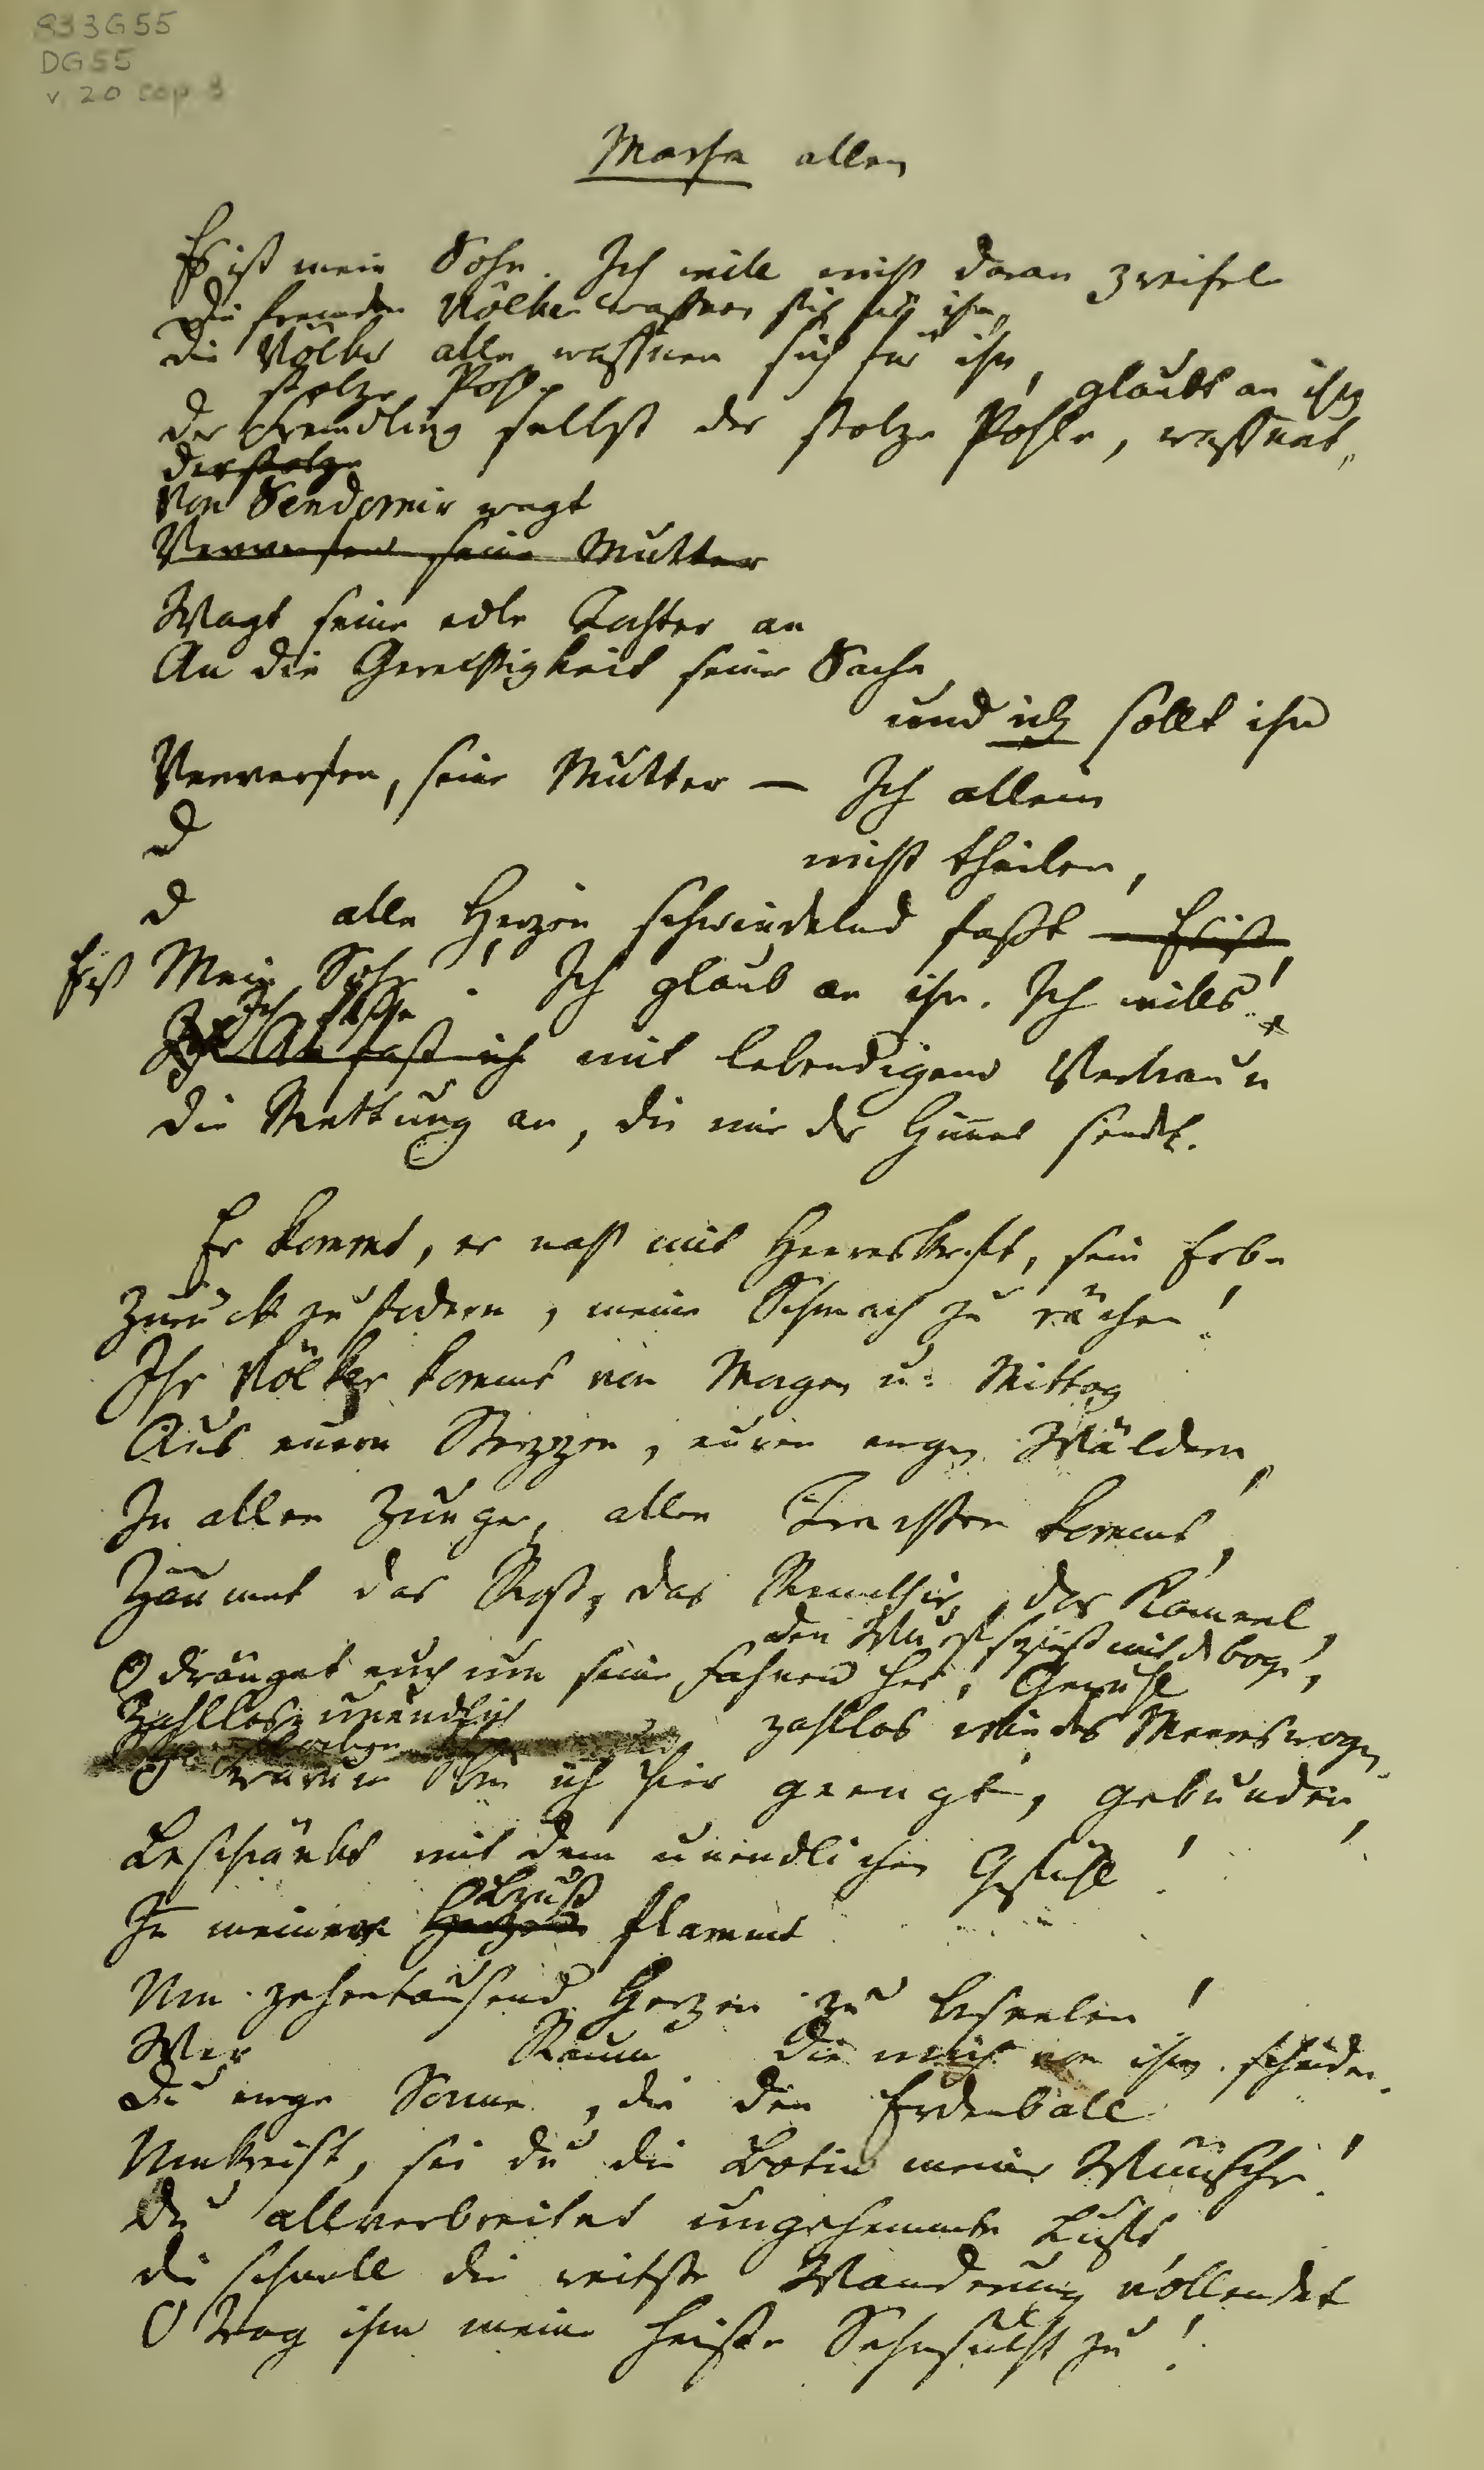 833G55
DG55
v. 20 cop 3
Marfa allein
Es ist mein Sohn. Ich will nicht daran zweifeln
Die fremden Völker waffnen sich für ihn,
Die Völker alle waffnen sich für ihn,
stolze Pohle glaubt an ihn
Der Fremdling selbst der stolze Pohle, waffnet,
der stolze
Von Sendomir wagt
Verwerfen seine Mutter
Wagt seine edle Tochter an
An die Gerechtigkeit seiner Sache,
und ich sollt ihn
Verwerfen, seine Mutter — Ich allein
D
nicht theilen,
D alle Herzen schwindelnd faßt — Es ist
Er ist Mein Sohn! Ich glaub an ihn. Ich wills!
Ich fasse
fass ich mit lebendigem Vertraun
Die Rettung an, die mir der Himmel sendet.
Er kommt, er naht mit Heereskraft, sein Erbe
Zurück zu fodern, meine Schmach zu rächen!
Ihr Völker kommt von Morgen u: Mittag
Aus euern Steppen, euren ewgen Wäldern,
In allen Zungen, allen Trachten kommt,
Zäumet das Roß, das Rennthier, das Kameel,
den Wurfspieß mit d bogen,
O dränget euch um seine Fahnen her, Gewühl
Zahllos, unendlich zahllos wie des Meeres wogen
O warum bin ich hier geengt, gebunden,
Beschränkt mit dem unendlichen Gefühl!
In meiner flammt
Um zehentausend Herzen zu beseelen!
Wer Raum die mich von ihm scheiden.
Du ewge Sonne, die den Erdenball
Umkreist, sei du die Botin meiner Wünsche!
Du allverbreitet ungehemmte Luft,
Die schnell die weitste Wanderung vollendet
O trag ihm meine heiße Sehnsucht zu!